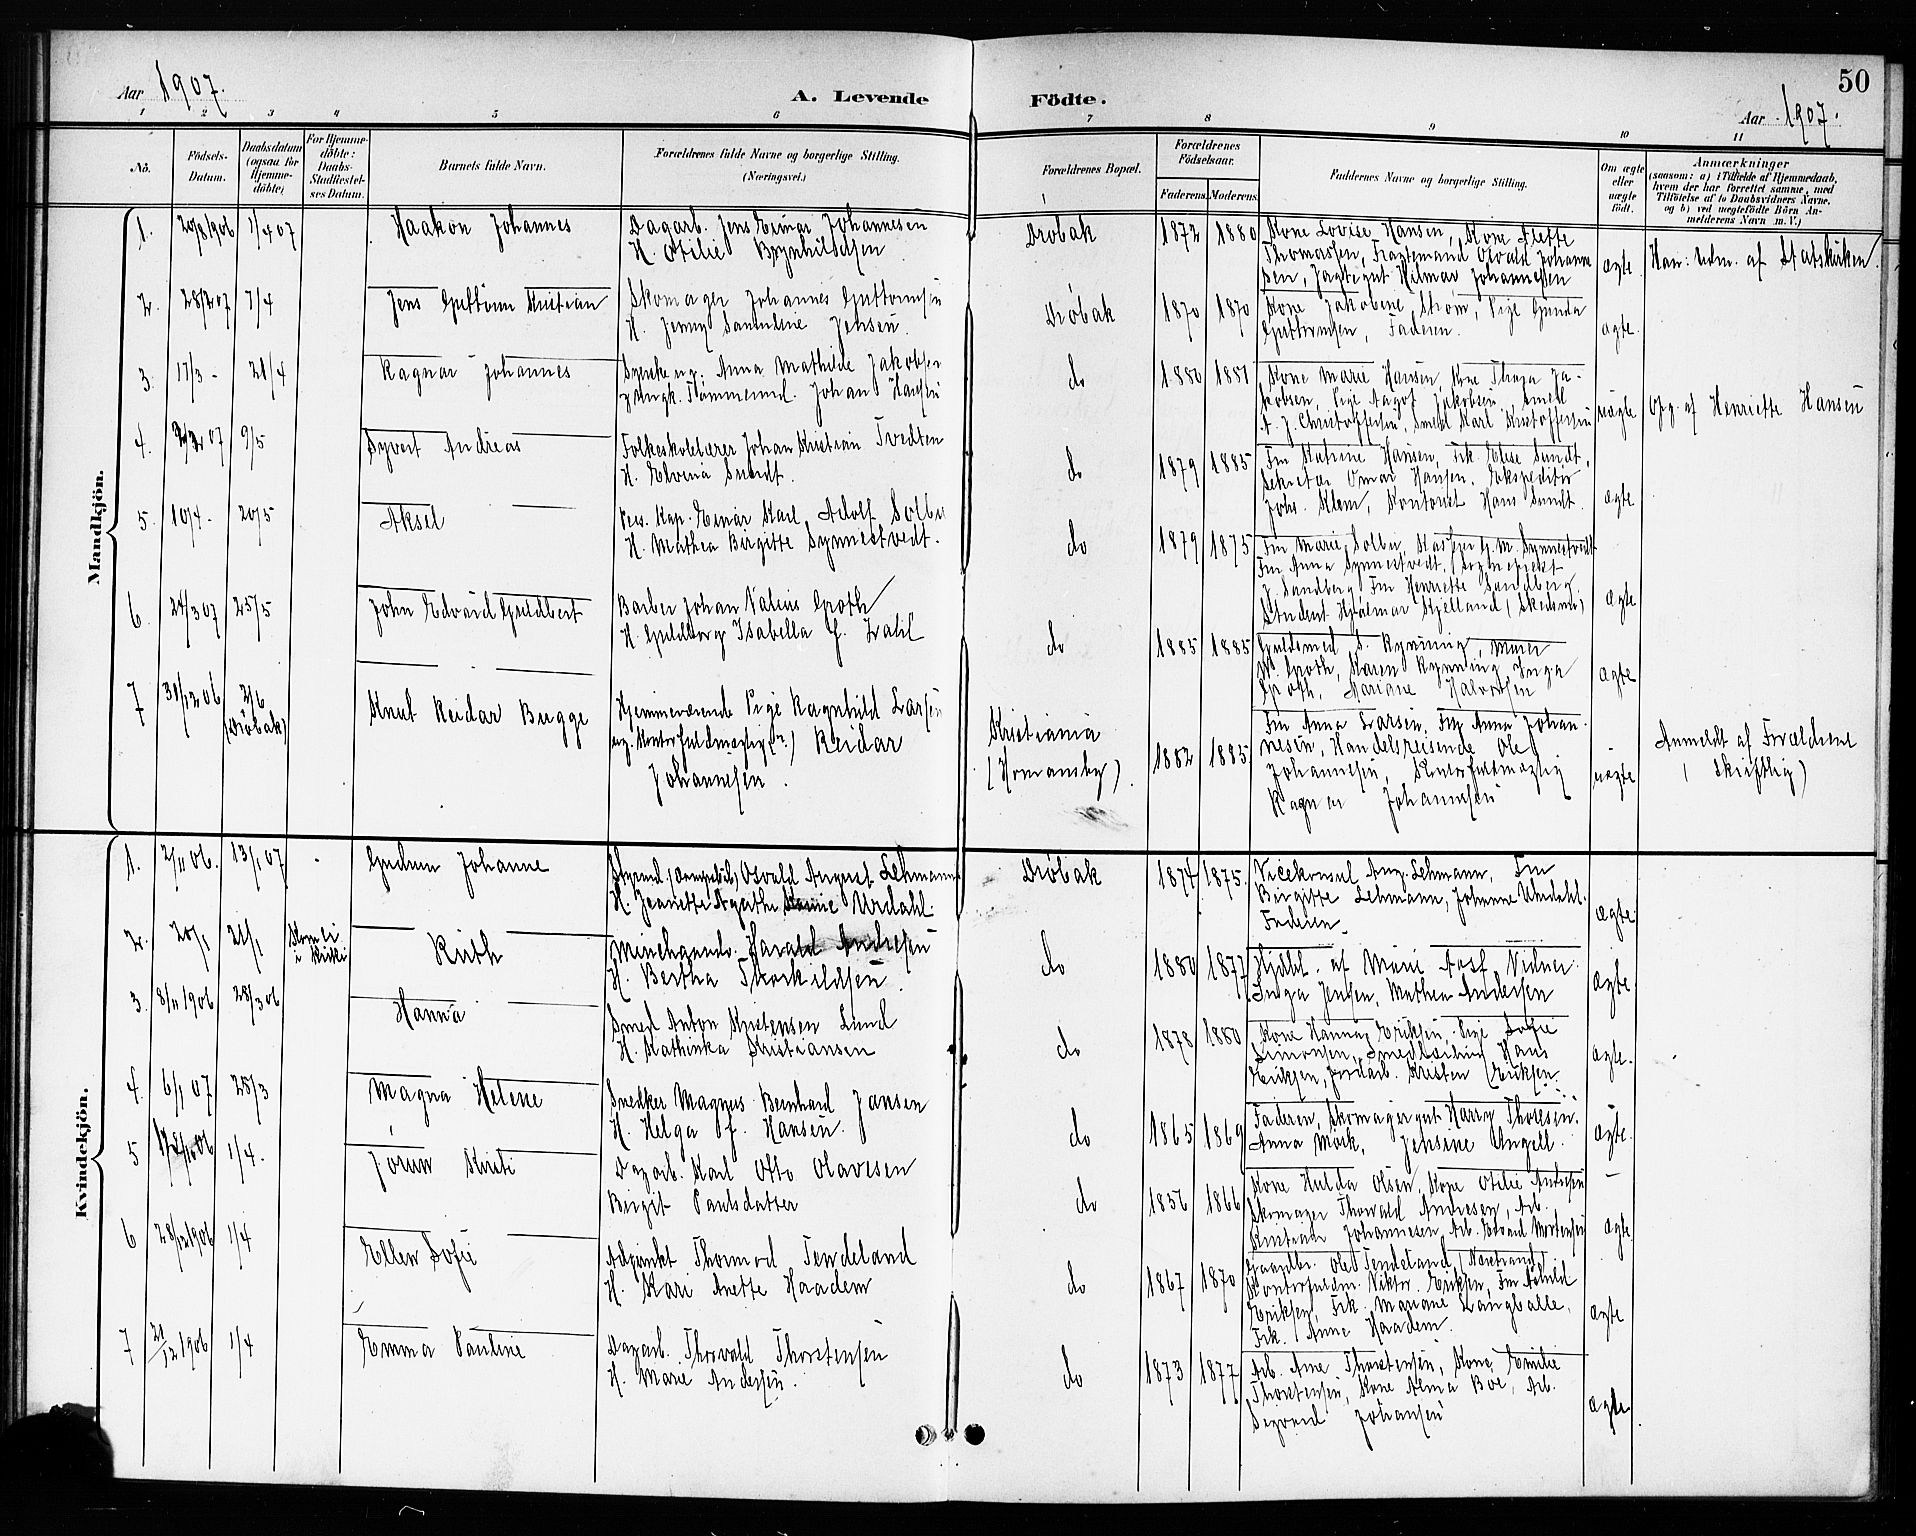 50
Aar 1907.
A. Levende Födte.
Aar 1907.
1 2 3 4 5 6 7 8 9 10 11
No.
Födsels-Datum.
Daabsdatum (ogsaa for Hjemme-döbte)
For Hjemme-döbte: Daabs-Stadfæstel-ses Datum.
Barnets fulde Navn.
Forældrenes fulde Navne og borgerlige Stilling. (Næringsvei.)
Forældrenes Bopæl.
Forældrenes Födselsaar.
Faderens. Moderens.
Faddernes Navne og borgerlige Stilling.
Om ægte eller uægte födt.
Anmærkninger
(saasom: a) i Tilfælde af Hjemmedaab,
hvem der har forrettet samme, med
Tilföielse af to Daabsvidners Navne,
og b) ved uægtefödte Börn An-
melderens Navn m. V.)
Mandkjön.
1. 20/8 1906 1/4 07 Haakon Johannes
Dagarb. Jens Einar Johannesen
H. Otilie Brynhildsen
Drøbak 1872 1880
Kone Lovise Hansen, Kone Alette
Thomassen, Fragtemand Osvald Johanne
sen, Jagtegut Hilmar Johannessen
ægte Han: udm. af Statskirken.
2. 28/2 07 7/4 Jens Guttorm Kristian
Skomager Johannes Guttormsen
H. Jenny Jensen
Drøbak 1870 1870
Kone Jakobine Strøm, Pige Gunda
Guttormsen, Faderen.
ægte
3. 17/3 - 21/4 Ragnar Johannes
Anna Mathilde Jakobsen
Johan Hansen
do 1880 1881
Kone Marie Hansen, Kone Thora Ja-
kobsen, Pige Aagot Jakobsen, Smed
A. J. Christoffersen, Smed Karl Kristoffersen
uægte Opg. af Henriette Hansen
4. 07 9/5 Syvert Andreas
Folkeskolelærer Johan Kristian Tvedten
H. Elvina Sundt.
do 1879 1885
Fru Katrine Hansen, Frk. Elise Sundt,
Sekretær Omar Hansen, Ekspeditør
Johs. Klem, Kontorist Hans Sundt.
ægte
5. 10/4 - 20/5 Aksel
Pers. Kap. Einar Karl Adolf Solbu
H. Mathea Birgitte Synnestvedt.
do 1879 1875
Fru Marie Solbu, Kasserer G. M. Synnestvedt
Fru Anna Synnestvedt, Sogneprest
J. Sandberg, Fru Henriette Sandberg
Student Hjalmar Kjelland (Skedsmo)
ægte
6. 24/3 07 25/5 John Edvard Guldbert
Barber Johan Valius Groth
H. Guldborg Isabella G. Dahl
do 1885 1885
Guldsmed S. Rynning, Murer
W. Groth, Karen Rynning, Inga
Groth, Mariane Halvorsen
ægte
7 31/12 06 2/6 (Drøbak) Knut Reidar Bugge
Hjemmeværende Pige Ragnhild Larsen
ug. Kontorfuldmægtig Reidar
Johannesen.
Kristiania (Homansby). 1882 1885
Fru Anna Larsen, Fru Anna Johan-
nesen, Handelsreisende Ole
Johannesen, Kontorfuldmægtig
Ragnar Johannesen
uægte Anmeldt af Forældrene
( Skriftlig)
Kvindekjön.
1. 2/11 06. 13/1 07 Gudrun Johanne
Styrmd. Osvald August Lehmann
H. Jeanette Agathe Urdahl.
Drøbak 1874 1875.
Vicekonsul Aug. Lehmann, Fru
Birgitte Lehmann, Johanne Urdahl.
Faderen.
ægte
2. 20/1 21/1 Kirke Ruth
Harald Andresen
H. Bertha Thorkildsen.
do 1880 1877
Hjdbt. af Marie
Inga Jensen, Mathea Andersen
ægte.
3. 8/11 1906 28/3 06 Hanna
Smed Anton Kristensen Lund
H. Kathinka Kristiansen
do 1878 1880
Kone Hanna Eriksen, Pige Sofie
Simonsen, Smedlærling Hans
Eriksen, Jordarb. Kristen Eriksen.
ægte.
4. 6/1 07 25/3 Magna Helene
Snedker Magnus Bernhard Jansen
H. Helga J. Hansen.
do 1865 1869
Faderen, Skomagergut Harry Thoresen.
Anna Mørk, Jensine Ungell.
ægte.
5 06 1/4. Jorun Kirsti
Dagarb. Karl Otto Olavesen
Birgit Paulsdatter
do 1856 1866
Kone Hulda Olsen, Kone Otilie Andresen
Skomager Thorvald Andresen, Arb.
Kristian Johannesen, Arb. Edvard Mortensen
ægte
6 28/12 1906 1/4 Ellen Sofie
Adjunkt Thormod Tendeland
H. Kari Anette Haadem
do 1867 1870
Gaardbr. Ole Tendeland (Norstrand)
Kontorfuldm. Viktor Eriksen, Fru Ashild
Eriksen, Frk. Mariane Langballe,
Frk. Anna Haadem.
ægte
7 21/12 1906 1/4 Emma Pauline
Dagarb. Thorvald Thorstensen
H. Marie Andersen.
do 1873 1877
Arb. Arne Thorstensen, Kone Emilie
Thorstensen, Kone Alma Boe, Arb.
Sigvard Johansen
ægte